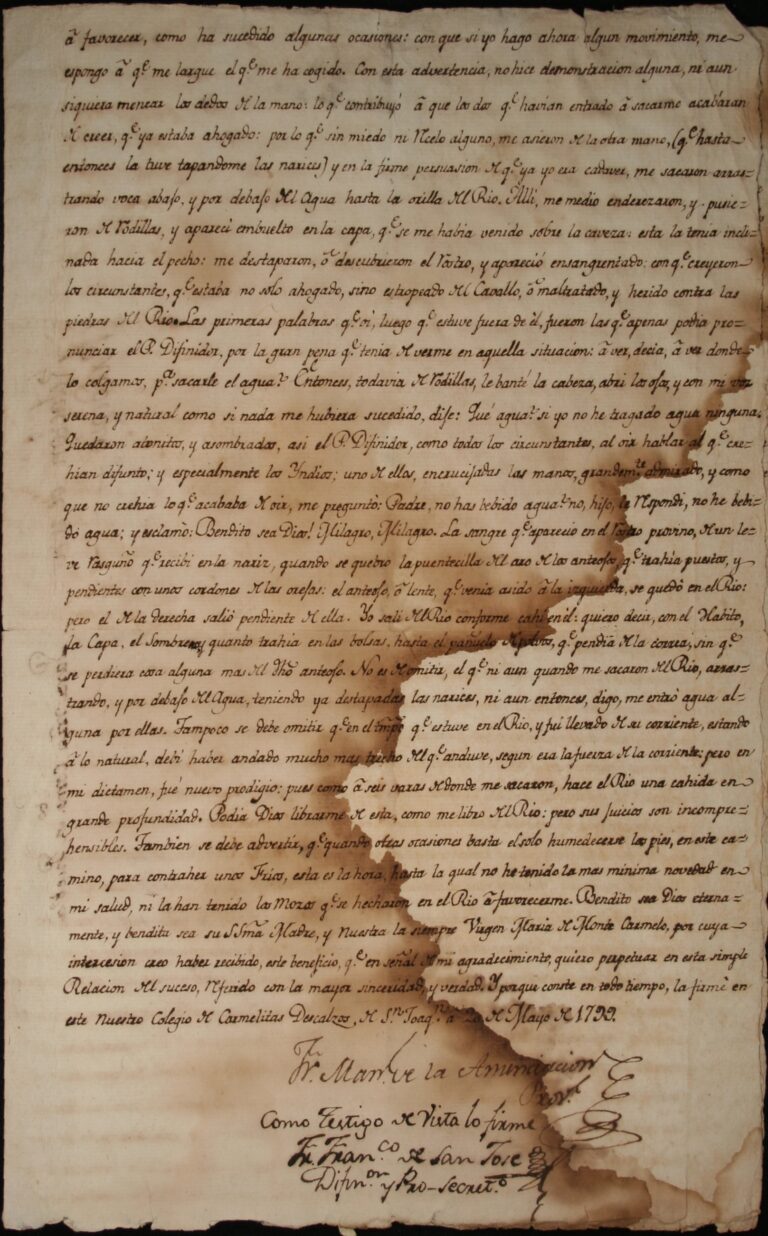 â favorecer, como ha sucedido algunas ocasiones: con que si yo hago ahora algun movimiento, me
espongo â q.e me largue el q.e me ha cogido. Con esta advertencia, no hice demonstracion alguna, ni aun
siquiera menear los dedos de la mano: lo q.e contribuyó â que los dos q.e havian entrado â sacarme acabáran
de creer, q.e ya estaba ahogado: por lo q.e sin miedo ni recelo alguno, me asieron de la otra mano, (q.e hasta
entonces la tuve tapandome las narices) y en la firme persuasion de q.e ya yo era cadaver, me sacaron arras=
trando voca abajo, y por debajo del Agua hasta la orilla del Rio. Alli, me medio enderezaron, y pusie=
ron de rodillas, y aparecì embuelto en la capa, q.e se me habia venido sobre la caveza: esta la tenia incli=
nada hacia el pecho: me destaparon, ô descubrieron el rostro, y apareció ensangrentado: con q.e creyeron
los circunstantes, q.e estaba no solo ahogado, sino estropeado del Cavallo, ô maltratado, y herido contra las
piedras del Rio. Las primeras palabras q.e oì, luego q.e estuve fuera de èl, fueron las q.e apenas podia pro=
nunciar el P. Difinidor, por la gran pena q.e tenia de verme en aquella situacion: â ver, decia, â ver donde
lo colgamos, p.a sacarle el agua? Entonces, todavia de rodillas, lebanté la cabeza, abri los ojos, y con mi voz
serena, y natural como si nada me hubiera sucedido, dije: Què agua? si yo no he tragado agua ninguna.
Quedaron atonitos, y asombrados, asi el P. Difinidor, como todos los circunstantes, al oir hablar al q.e cre=
hian difunto; y especialmente los Yndios; uno de ellos, encrucijadas las manos, grandem.te admirado, y como
que no crehia lo q.e acababa de oir, me preguntò: Padre, no has bebido agua? no, hijo, le respondi, no he bebi=
do agua; y esclamò: Bendito sea Dios! Milagro, Milagro. La sangre q.e aparecio en el rostro provino, de un le=
ve rasguño q.e recibì en la nariz, quando se quebro la puentecilla del aro de los anteojos q.e trahia puestos, y
pendientes con unos cordones de las orejas: el anteojo, ô lente, q.e venia asido â la izquierda, se quedò en el Rio:
pero el de la derecha saliò pendiente de ella. Yo salì del Rio conforme cahì en èl: quiero decir, con el Habito,
la Capa, el Sombrero y quanto trahia en las bolsas, hasta el pañuelo de polvos, q.e pendia de la correa, sin q.e
se perdiera cosa alguna mas del dho anteojo. No es de omitir, el q.e ni aun quando me sacaron del Rio, arras=
trando, y por debajo del Agua, teniendo ya destapadas las narices, ni aun entonces, digo, me entrò agua al=
guna por ellas. Tampoco se debe omitir q.e en el tmpo q.e estuve en el Rio, y fuì llevado de su corriente, estando
â lo natural, debì haber andado mucho mas trecho del q.e anduve, segun era la fuerza de la corriente: pero en
mi dictamen, fuè nuevo prodigio: pues como â seis varas de donde me sacaron, hace el Rio una cahida en
grande profundidad. Podia Dios librarme de esta, como me libro del Rio: pero sus juicios son incompre=
hensibles. Tambien se debe advertir, q.e quando otras ocasiones basta el solo humedecerse los pies, en este ca=
mino, para contraher unos Frios, esta es la hora, hasta la qual no he tenido la mas minima novedad en
mi salud, ni la han tenido los Mozos q.e se hecharon en el Rio â favorecerme. Bendito sea Dios eterna=
mente, y bendita sea su SSma Madre, y Nuestra la siempre Virgen Maria de Monte Carmelo, por cuya
intercesion creo haber recibido, este beneficio, q.e en señal de mi agradecimiento, quiero perpetuar en esta simple
Relacion del suceso, referido con la mayor sinceridad, y verdad. Y porque conste en todo tiempo, la firmè en
este Nuestro Colegio de Carmelitas Descalzos, de S.n Joaq.n â 20 de Mayo de 1799.
Fr. Man.l de la Anunciacion
Prov.l
Como Testigo de Vista lo firmè
Fr. Fran.co de San Jose
Difin.or y Pro-Secret.o